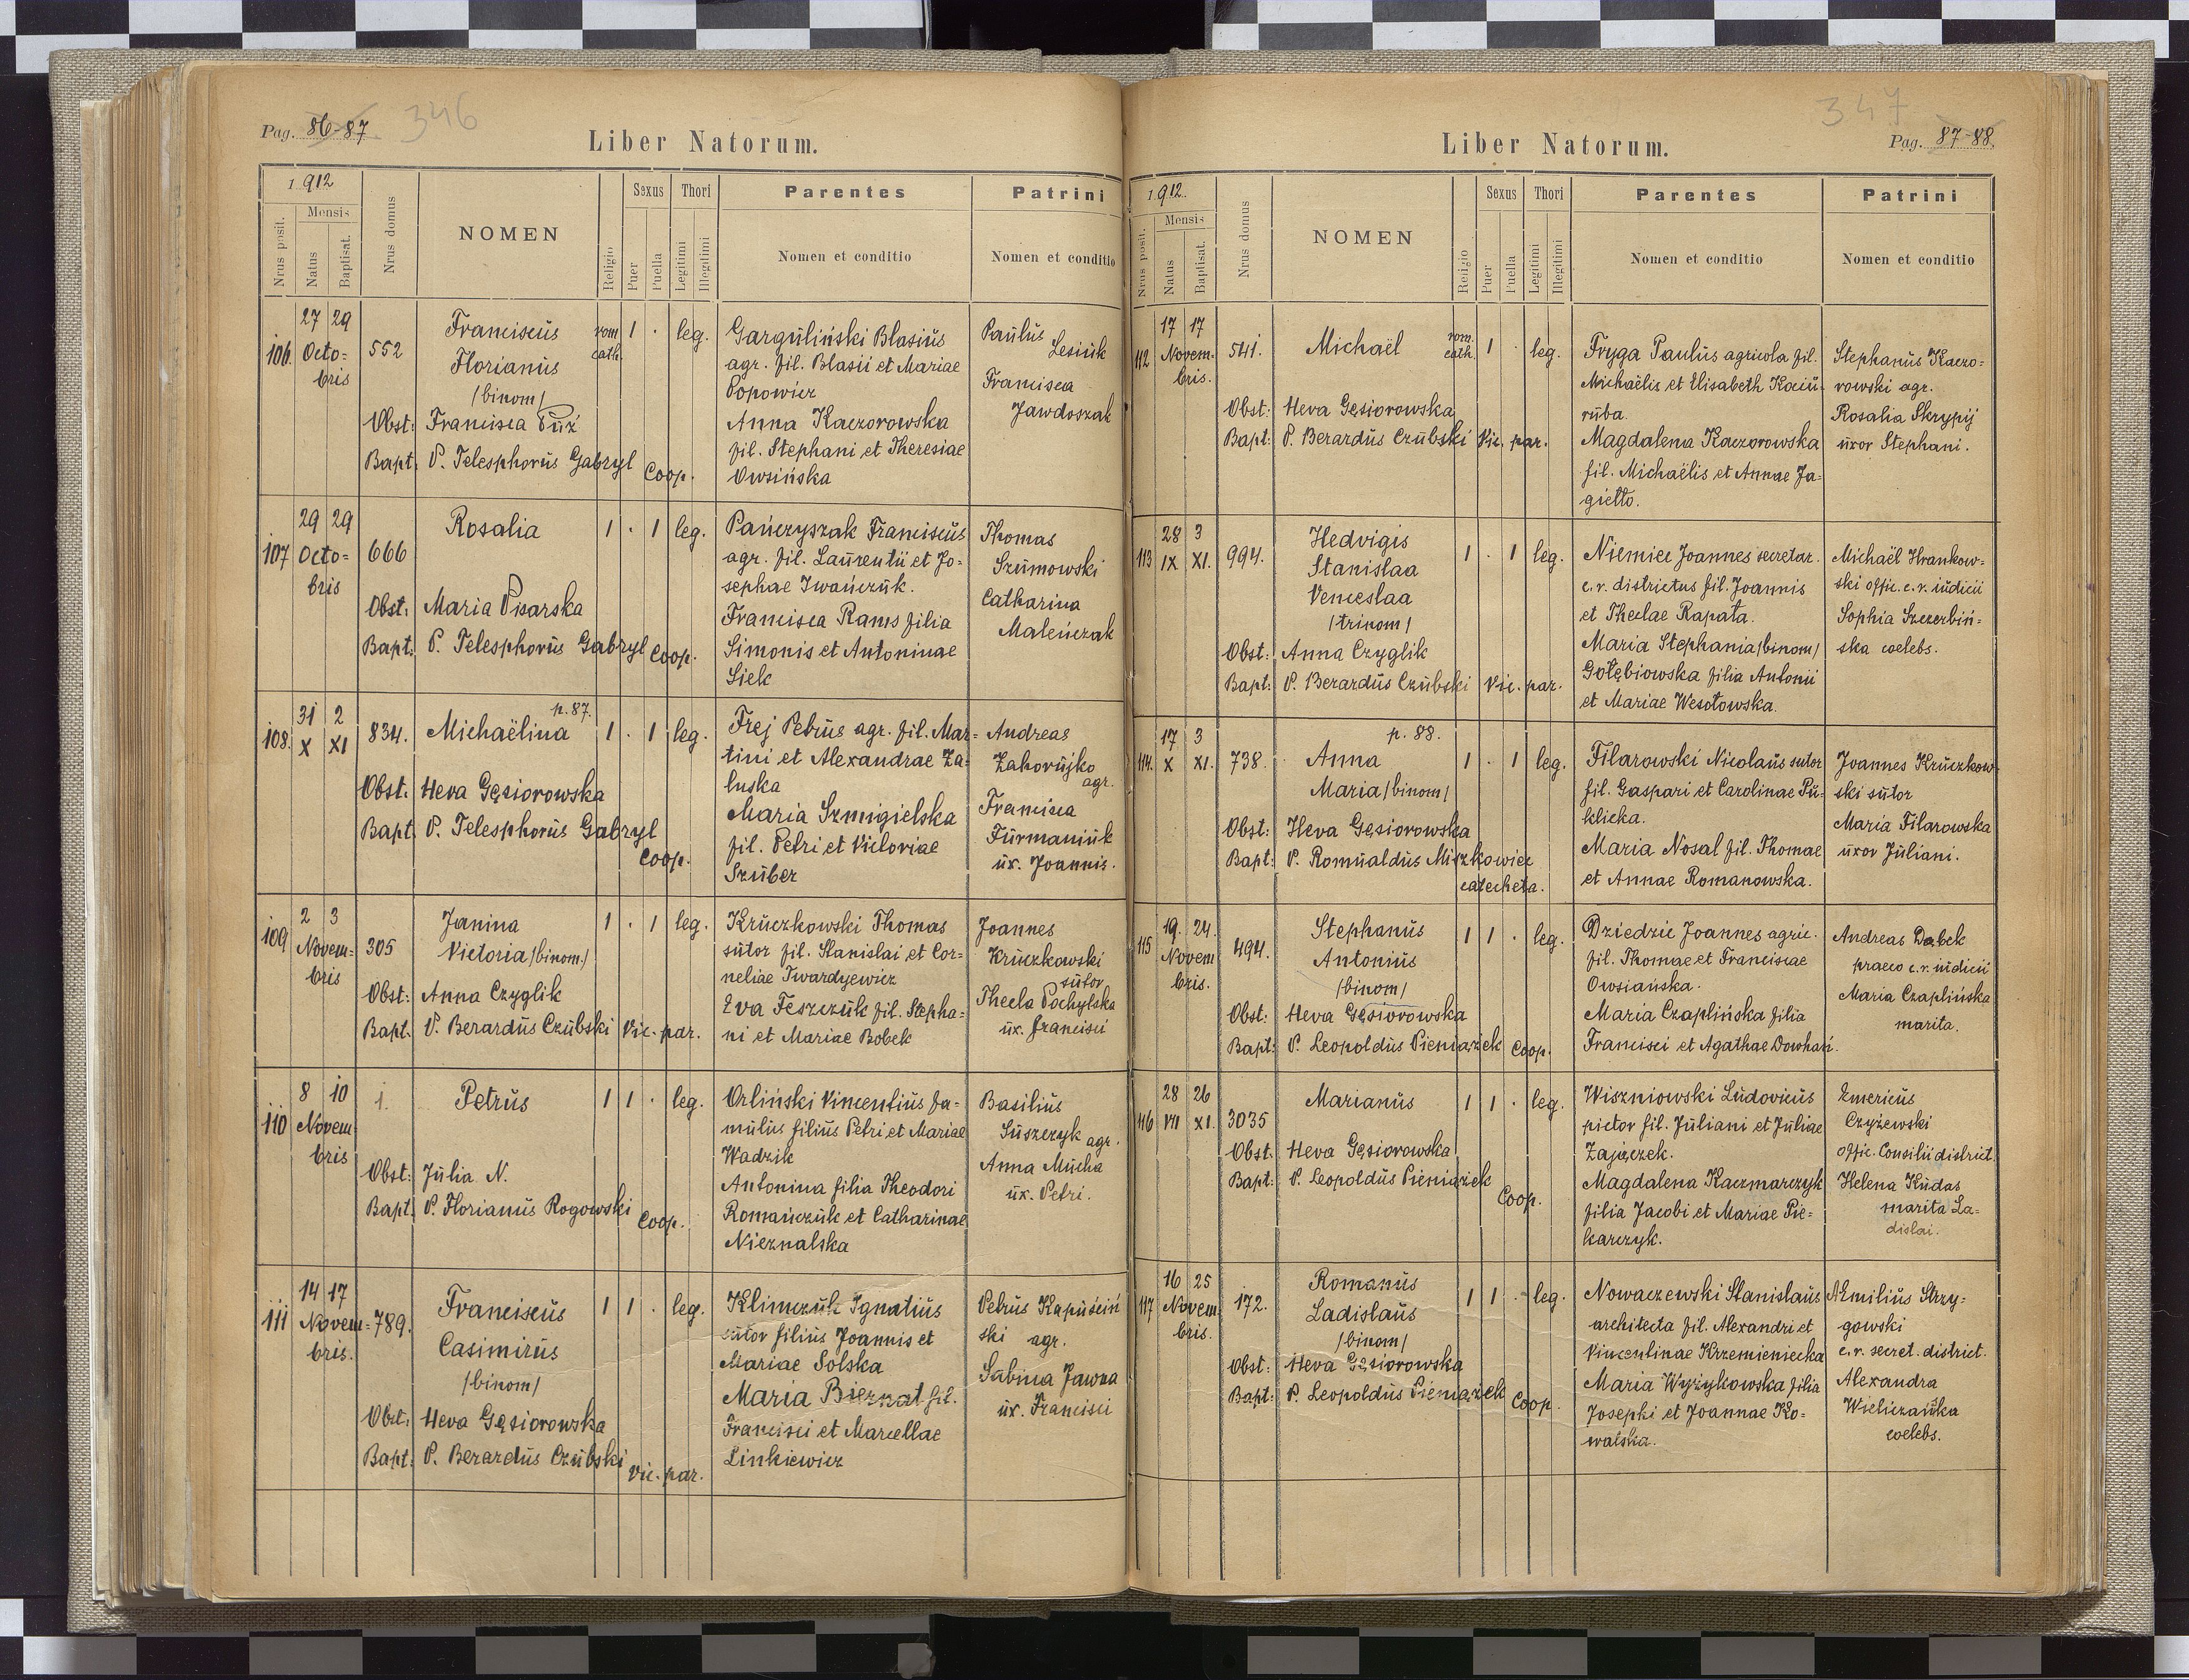 Pag. 86-87. 346
Liber Natorum.
1912
Mensis
Nrus posit.
Natus
Baptisat.
Nrus domus
NOMEN
Religio
Sexus
Puer
Puella
Thori
Legitimi
Illegitimi
Parentes
Nomen et conditio
Patrini
Nomen et conditio
106.
27 29
Octo=
bris
552
Franciscus
Florianus
/binom/
rom.
cath.
1 . leg.
Obst: Francisca Puź
Bapt: P. Telesphorus Gabryl Coop.
Garguliński Blasius
agr. fil. Blasii et Mariae
Popowicz
Anna Kaczorowska
fil. Stephani et Theresiae
Owsińska
Paulus
Lesiuk
Francisca
Jawdoszak
107
29 29
Octo=
bris
666
Rosalia
1 . 1 leg.
Obst: Maria Pisarska
Bapt: P. Telesphorus Gabryl Coop.
Pańczyszak Franciscus
agr. fil. Laurentii et Jo=
sephae Iwańczuk.
Francisca Rams filia
Simonis et Antoninae
Siek
Thomas
Szumowski
Catharina
Maleńczak
108.
31 2
X XI
834.
p. 87.
Michaëlina
1 . 1 leg.
Obst: Heva Gąsiorowska
Bapt. P. Telesphorus Gabryl
Coop.
Frej Petrus agr. fil. Mar=
tini et Alexandrae Za=
luska
Maria Szmigielska
fil. Petri et Victoriae
Szuber
Andreas
Zahorujko
agr.
Francisca
Furmaniuk
ux. Joannis.
109
2 3
Novem=
bris
305
Janina
Victoria /binom./
1 . 1 leg.
Obst: Anna Czyglik
Bapt: P. Berardus Czubski Vic. par.
Kruczkowski Thomas
sutor fil. Stanislai et Cor=
neliae Twardyewicz
Eva Feszczuk fil. Stepha=
ni et Mariae Bobek
Joannes
Kruczkowski
sutor
Thecla Pochylska
ux. Francisci
110
8 10
Novem
bris
1.
Petrus
1 1 . leg.
Obst: Julia N.
Bapt. P. Florianus Rogowski Coop.
Orliński Vincentius fa=
mulus filius Petri et Mariae
Wadzik
Antonina filia Theodori
Romańczuk et Catharinae
Nieznalska
Basilius
Suszczyk agr.
Anna Mucha
ux. Petri.
111
14 17
Novem=
bris.
789.
Franciscus
Casimirus
/binom/
1 1 . leg.
Obst: Heva Gąsiorowska
Bapt: P. Berardus Czubski Vic. par.
Klimczuk Ignatius
sutor filius Joannis et
Mariae Solska
Maria Biernat fil.
Francisci et Marcellae
Linkiewicz
Petrus Kapuściń
ski agr.
Sabina Jawna
ux. Francisci
347
Liber Natorum.
Pag. 87-88.
1912.
Mensis
Nrus posit.
Natus
Baptisat.
Nrus domus
NOMEN
Religio
Sexus
Puer
Puella
Thori
Legitimi
Illegitimi
Parentes
Nomen et conditio
Patrini
Nomen et conditio
112
17 17
Novem.
bris.
541.
Michaël
rom.
cath.
1 . leg.
Obst: Heva Gąsiorowska
Bapt: P. Berardus Czubski Vic. par.
Fryga Paulus agricola fil.
Michaëlis et Elisabeth Kociu=
ruba.
Magdalena Kaczorowska
fil. Michaëlis et Annae Ja=
giełło.
Stephanus Kaczo=
rowski agr.
Rosalia Skrypij
uxor Stephani.
113
28 3
IX XI.
994.
Hedvigis
Stanislaa
Venceslaa
/trinom/
1 . 1 leg.
Obst: Anna Czyglik
Bapt: P. Berardus Czubski Vic. par.
Niemiec Joannes secretar.
c. r. districtus fil. Joannis
et Theclae Rapata.
Maria Stephania /binom/
Gołębiowska filia Antonii
et Mariae Wesołowska.
Michaël Hrankow=
ski offic. c. r. iudicii
Sophia Szczerbiń=
ska coelebs.
114.
17 3
X XI.
738.
p. 88.
Anna
Maria /binom/
1 . 1 leg.
Obst: Heva Gąsiorowska
Bapt: P. Romualdus Miszkowicz
catecheta.
Filarowski Nicolaus sutor
fil. Gaspari et Carolinae Pu=
klicka.
Maria Nosal fil. Thomae
et Annae Romanowska.
Joannes Kruczkow=
ski sutor
Maria Filarowska
uxor Juliani.
115
19. 24.
Novem
bris.
494.
Stephanus
Antonius
/binom/
1 1 . leg.
Obst: Heva Gąsiorowska
Bapt: P. Leopoldus Pieniążek Coop.
Dziedzic Joannes agric.
fil. Thomae et Franciscae
Owsiańska.
Maria Czaplińska filia
Francisci et Agathae Dowhań.
Andreas Dąbek
praeco c. r. iudicii
Maria Czaplińska
marita.
116
28 26
VII XI.
3035
Marianus
1 1 . leg.
Obst: Heva Gąsiorowska
Bapt: P. Leopoldus Pieniążek
Coop.
Wiszniowski Ludovicus
pictor fil. Juliani et Juliae
Zajączek.
Magdalena Kaczmarczyk
filia Jacobi et Mariae Pie=
karczyk.
Emericus
Czyżewski
offic. Consilii district.
Helena Kudas
marita La=
dislai.
117
16 25
Novem
bris.
172.
Romanus
Ladislaus
/binom/
1 1 . leg.
Obst: Heva Gąsiorowska
Bapt: P. Leopoldus Pieniążek Coop.
Nowaczewski Stanislaus
architecta fil. Alexandri et
Vincentinae Krzemieniecka
Maria Wyżykowska filia
Josephi et Joannae Ko=
walska.
AEmilius Strzy=
gowski
c. r. secret. district.
Alexandra
Wieliczańka
coelebs.